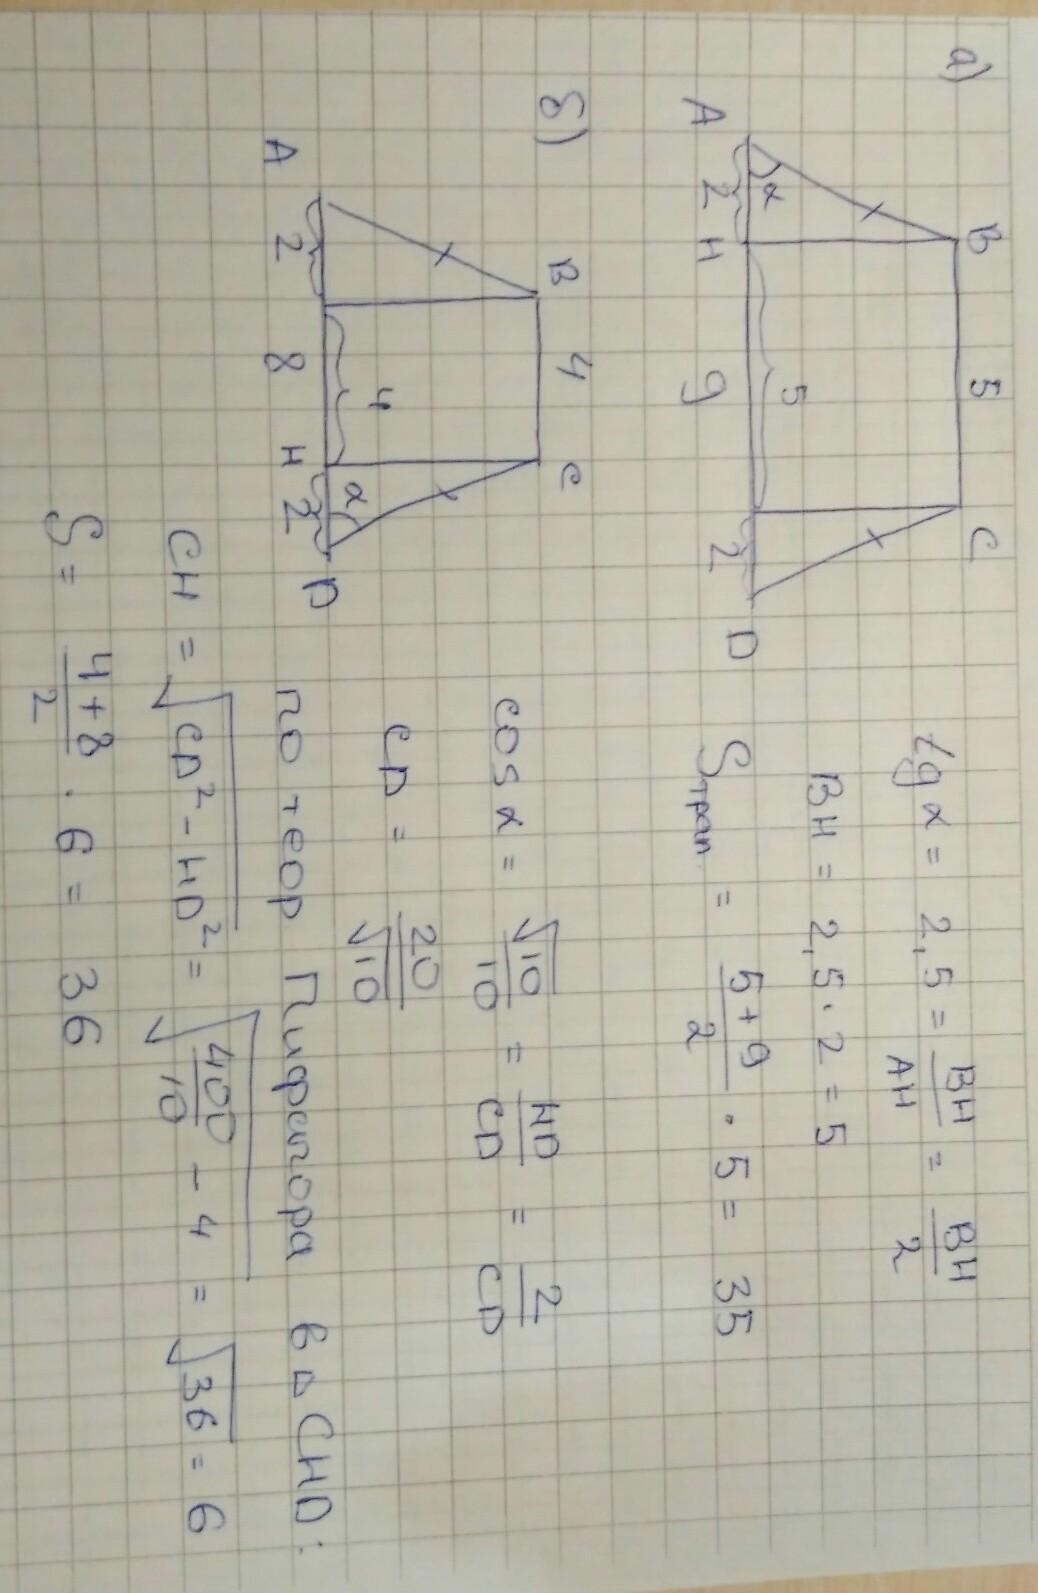 а)
B 5 C
A α 2 H 5 2 D
9
tg α = 2,5 = BH/AH = BH/2
BH = 2,5 · 2 = 5
Sтрап = 5+9/2 · 5 = 35
б)
B 4 C
4 α
A 2 8 H 2 D
cos α = √10/10 = HD/CD = 2/CD
CD = 20/√10
по теор Пифагора в △CHD:
CH = √CD² - HD² = √400/10 - 4 = √36 = 6
S = 4+8/2 · 6 = 36